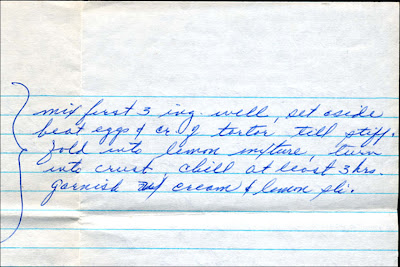 mix first 3 ing. well, set aside
beat eggs & cr. of tartor till stiff.
fold into lemon mixture, turn
into crust, chill at least 3 hrs.
garnish w/ cream & lemon sli.